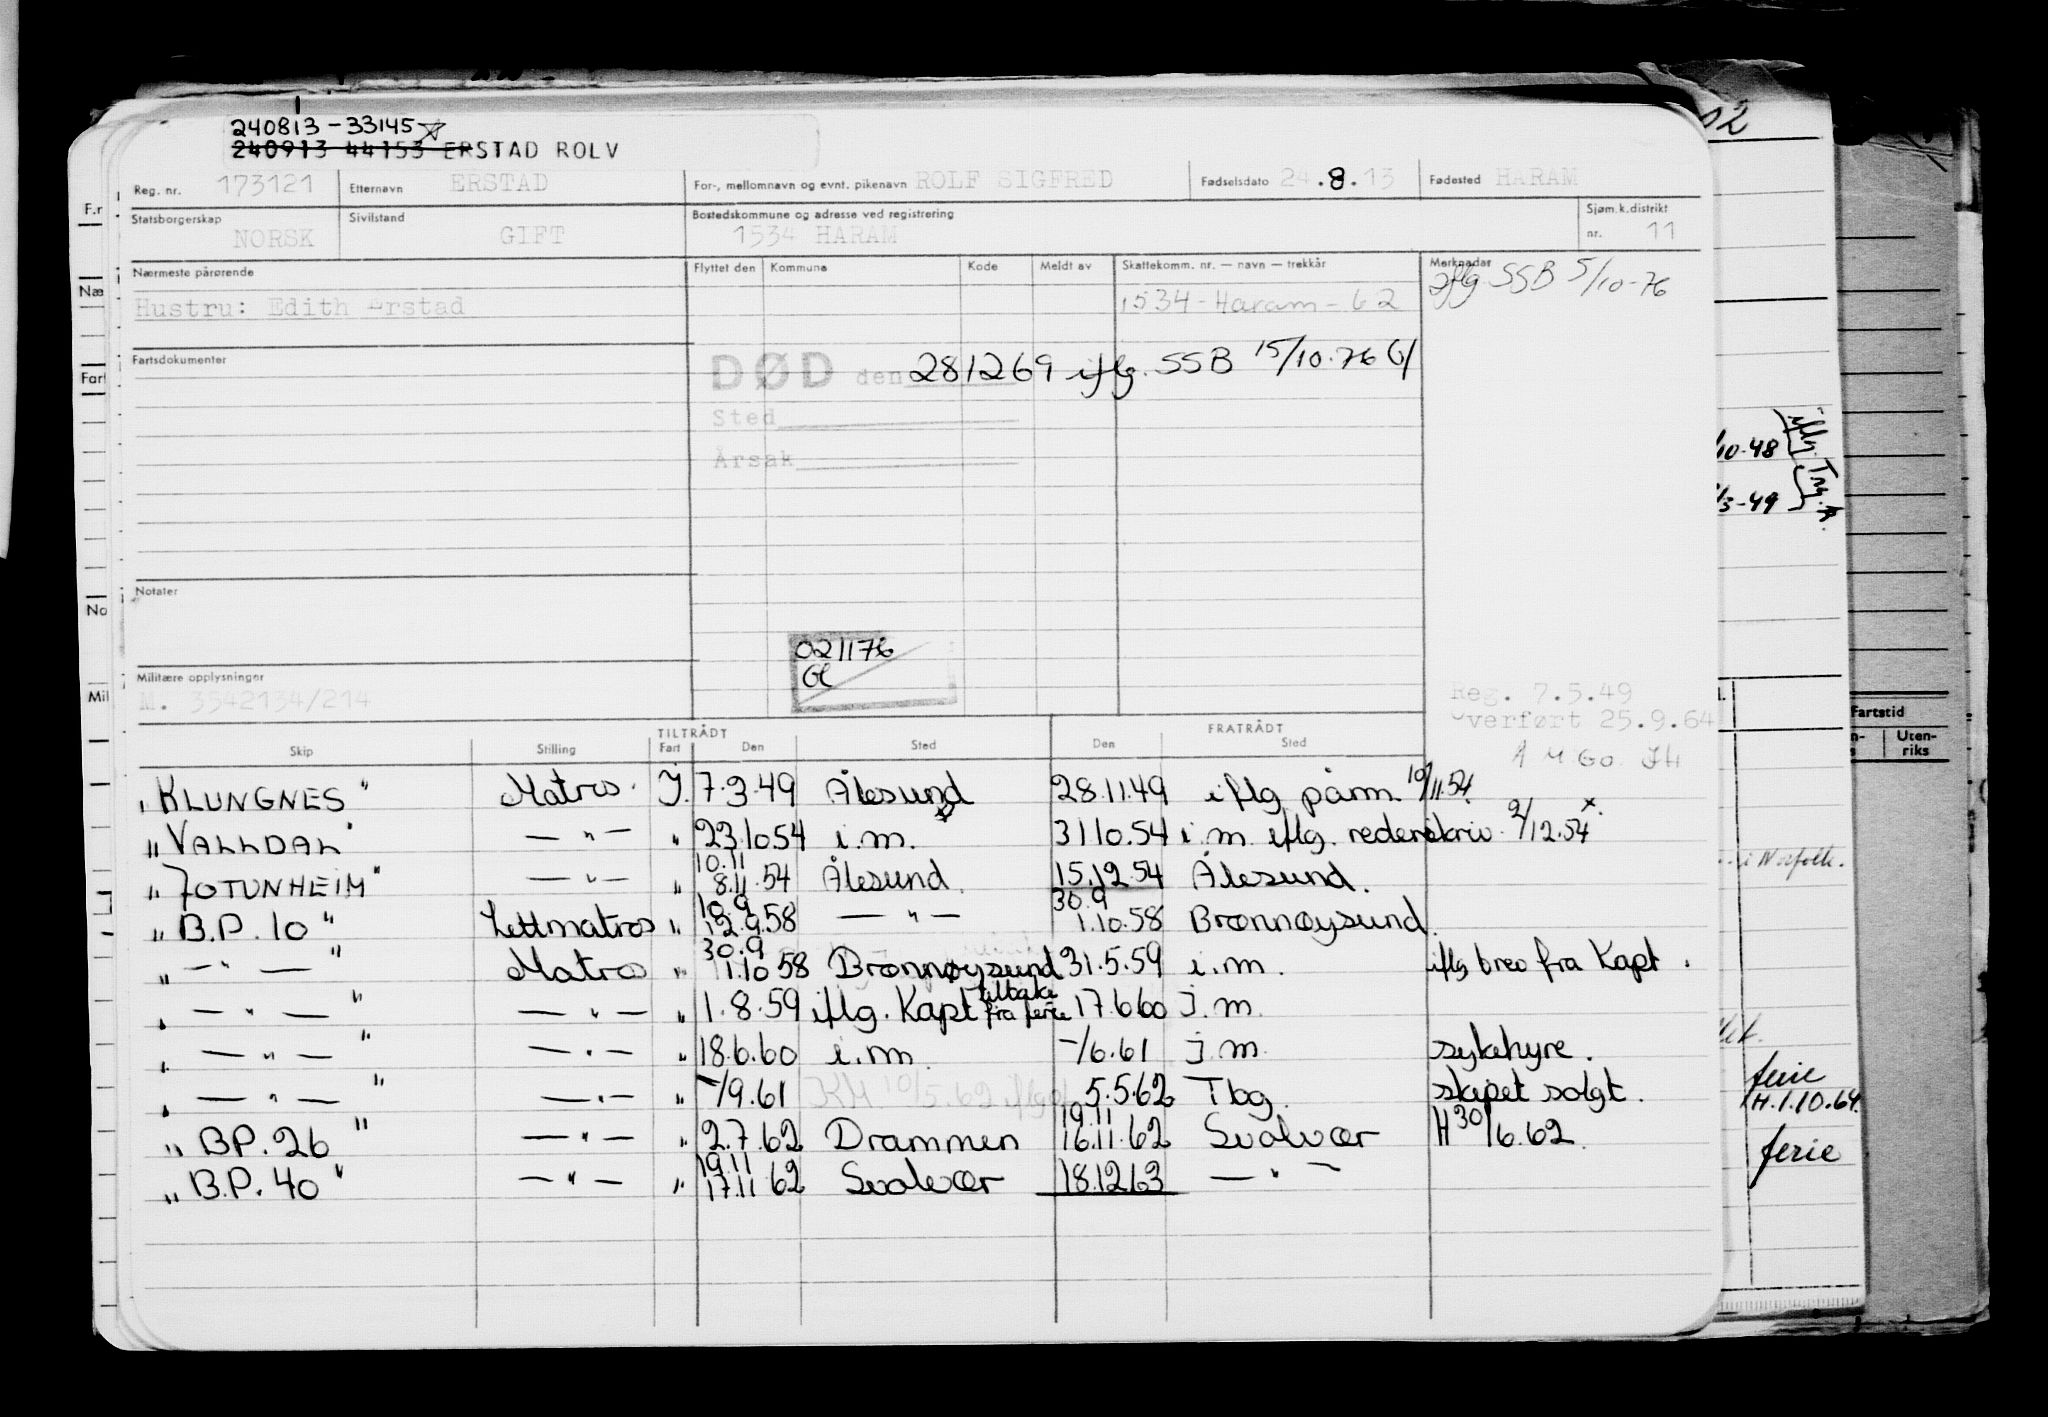 240813-33145
240913 44153 ERSTAD ROLV
Reg. nr. 173121 Etternavn ERSTAD For-, mellomnavn og evnt. pikenavn ROLF SIGFRED Fødselsdato 24.8.13 Fødested HARAM
Statsborgerskap NORSK Sivilstand GIFT Bostedskommune og adresse ved registrering 1534 HARAM Sjøm.k.distrikt nr. 11
Nærmeste pårørende Flyttet den Kommune Kode Meldt av Skattekomm. nr. — navn — trekkår Merknader
Hustru: Edith Erstad 1534-Haram-62 iflg SSB 5/10-76
Fartsdokumenter
DØD den 281269 iflg. SSB 15/10.76
Sted
Årsak
Notater
021176
Militære opplysninger
M. 3542134/214
Reg. 7.5.49
Overført 25.9.64
TILTRÅDT FRATRÅDT
Skip Stilling Fart Den Sted Den Sted
"KLUNGNES" Matros. I. 7.3.49 Ålesund 28.11.49 iflg påm. 10/11.54.
"VALLDAL" — " — " 23.10.54 i.m. 31 10.54 i.m. iflg. rederiskriv. 2/12.54 x.
10.11
"JOTUNHEIM" — " — " 8.11.54 Ålesund. 15.12.54 Ålesund.
10.9 30.9
"B.P. 10" Lettmatros " 12.9.58 — " — 1.10.58 Brønnøysund.
30.9
" — " — " Matros " 1.10 58 Brønnøysund 31.5.59 i.m. iflg brev fra Kapt.
" — " — " — " — " 1.8.59 iflg. Kapt tilbake fra ferie 17.6 60 i.m.
" — " — " — " — " 18.6.60 i.m. -/6.61 i.m. sykehyre.
" — " — " — " — " -/9.61 10/5.62 5.5.62 Tbg. skipet solgt.
19.11
"BP. 26" — " — " 2.7.62 Drammen 16.11.62 Svolvær H 30/6.62.
19.11
"B.P. 40" — " — " 17.11 62 Svolvær 18.12 63 — " —
F.r
Næ
Fart
No
Mil
02
/10-48
/3-49
iflg. Trg.
i Norfolk.
Fartstid
Uten-
riks
ferie
H.1.10.64.
ferie